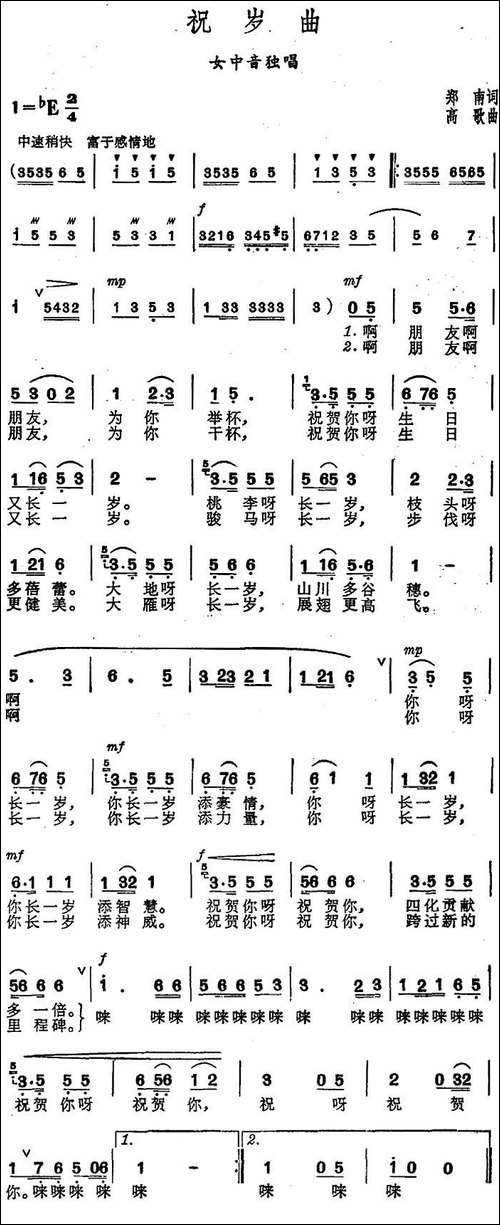 祝岁曲
女中音独唱
1=♭E 2/4
郑南词
高歌曲
中速稍快 富于感情地
(3535 6 5 | i 5 i 5 | 3535 6 5 | 1 3 5 3 |: 3555 6565 |
i 5 5 3 | 5 3 3 1 | 3216 345#5 | 6712 3 5 | 5 6 7 |
i 5432 | 1 3 5 3 | 1 33 3333 | 3) 0 5 | 5 5·6 |
mp mf
1.啊 朋 友啊
2.啊 朋 友啊
5 3 0 2 | 1 2·3 | 1 5· | 3·5 5 5 | 6 76 5 |
朋友, 为 你 举 杯, 祝贺你呀 生 日
朋友, 为 你 干 杯, 祝贺你呀 生 日
1 16 5 3 | 2 - | 3·5 5 5 | 5 65 3 | 2 2·3 |
又长一 岁。 桃 李呀 长一岁, 枝 头呀
又长一 岁。 骏 马呀 长一岁, 步 伐呀
1 21 6 | 3·5 5 5 | 5 6 6 | 1 16 5·6 | 1 - |
多蓓蕾。 大 地呀 长一岁, 山川多谷 穗。
更健美。 大 雁呀 长一岁, 展翅更高 飞。
5· 3 | 6· 5 | 3 23 2 1 | 1 1 21 6 | 3 5 5 |
mp
啊 你 呀
啊 你 呀
mf
6 76 5 | 3·5 5 5 | 6 76 5 | 6 1 1 | 1 32 1 |
长一岁, 你长一岁 添豪情, 你 呀 长一岁,
长一岁, 你长一岁 添力量, 你 呀 长一岁,
mf f
6·1 1 1 | 1 32 1 | 3·5 5 5 | 56 6 6 | 3·5 5 5 |
你长一岁 添智慧。 祝贺你呀 祝贺你, 四化贡献
你长一岁 添神威。 祝贺你呀 祝贺你, 跨过新的
f
56 6 6 | i· 6 6 | 5 6 6 5 3 | 3· 2 3 | 1 2 1 6 5 |
多一倍。 唻 唻唻 唻唻唻唻唻 唻 唻唻 唻唻唻唻唻
里程碑。
3·5 5 5 | 6 56 1 2 | 3 0 5 | 2 0 32 |
祝贺你呀 祝贺你, 祝 呀 祝 贺
1 7 6 5 06 | 1. 1 - :| 2. 1 0 5 | i 0 | 0 0 ‖
你。唻唻唻唻 唻 唻 唻 唻